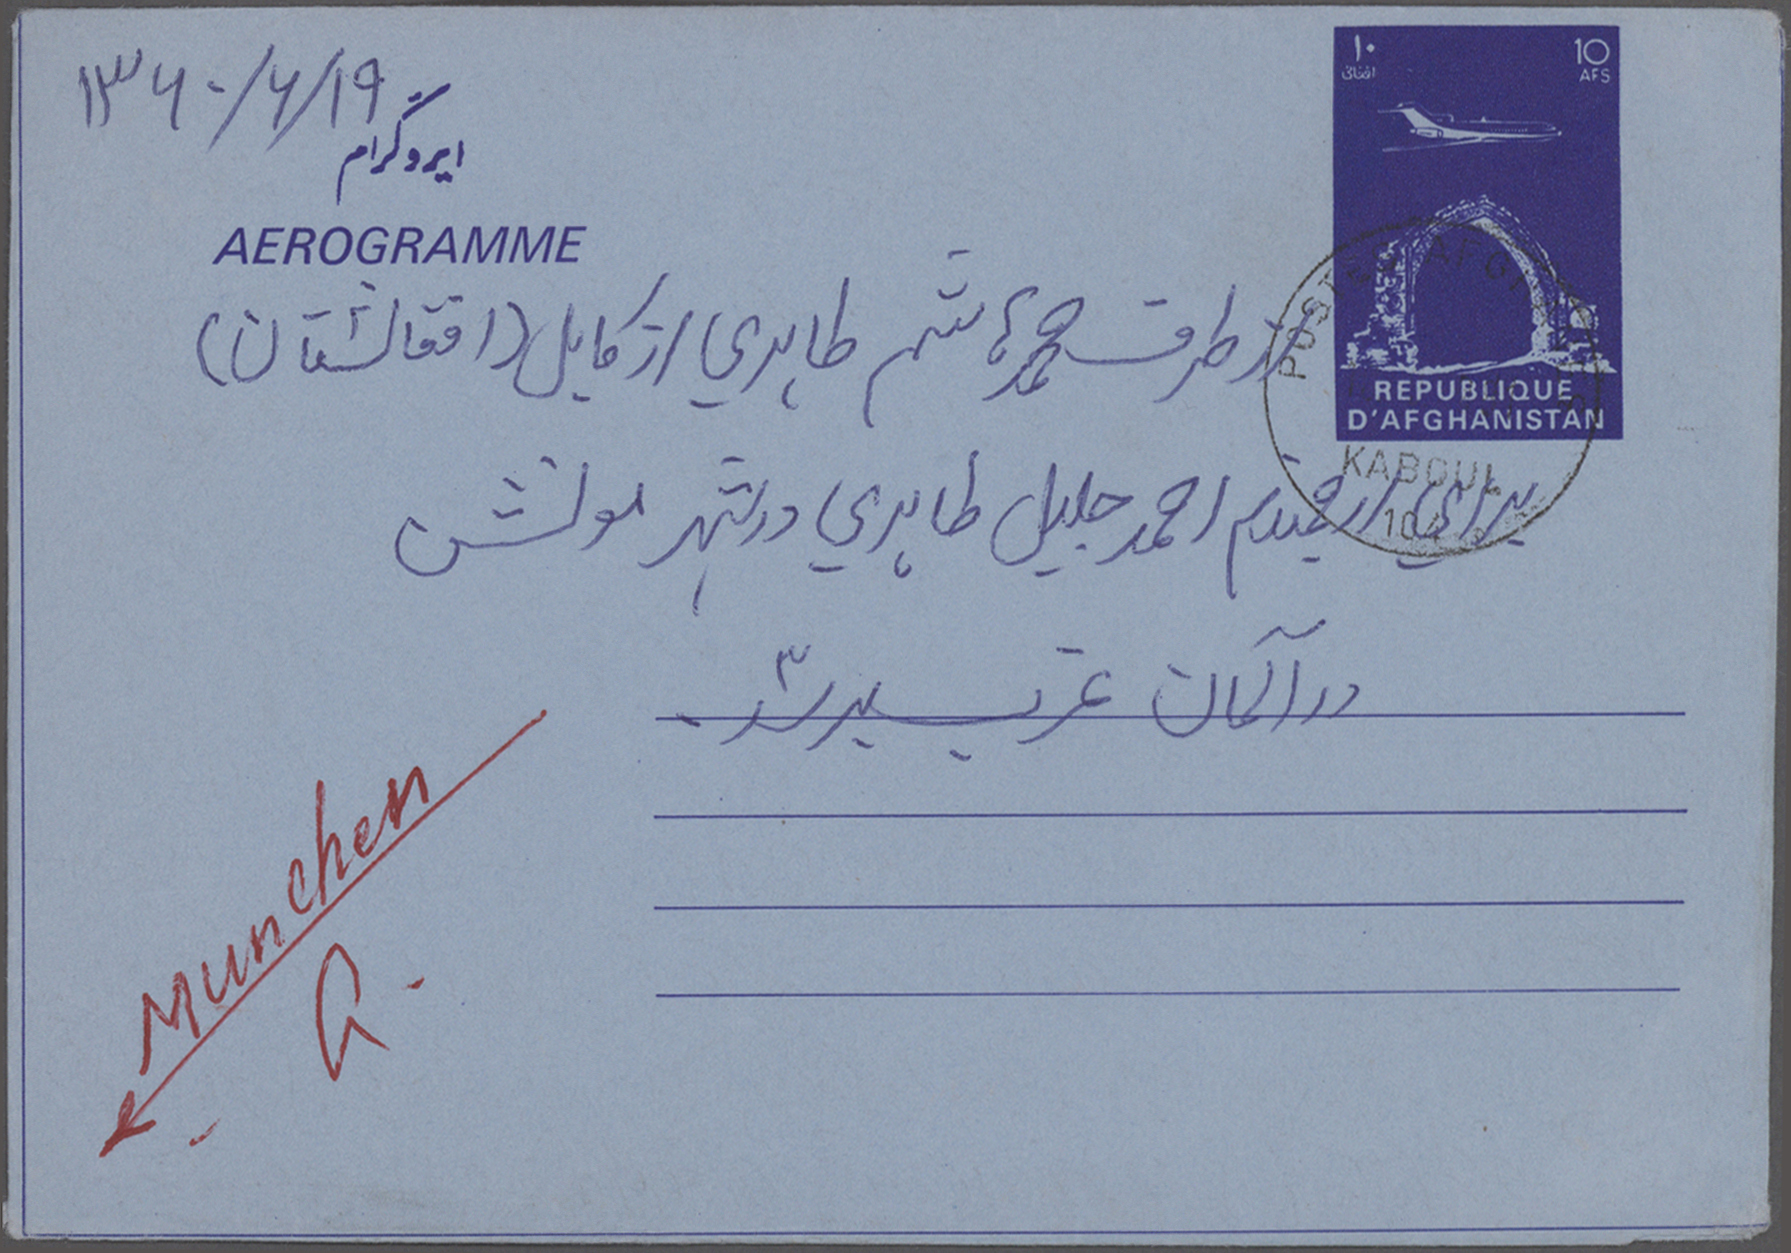 ۱۳۶۰/۶/۱۹
ايروگرام
AEROGRAMME
۱۰
افغانى
10
AFS
REPUBLIQUE
D'AFGHANISTAN
POSTES AFGHANES
KABOUL
از طرف محمد هاشم طاهري از کابل (افغانستان)
براي ارجمندم احمد جليل طاهري در شهر مونشن
در آلمان غرب برسد
Munchen